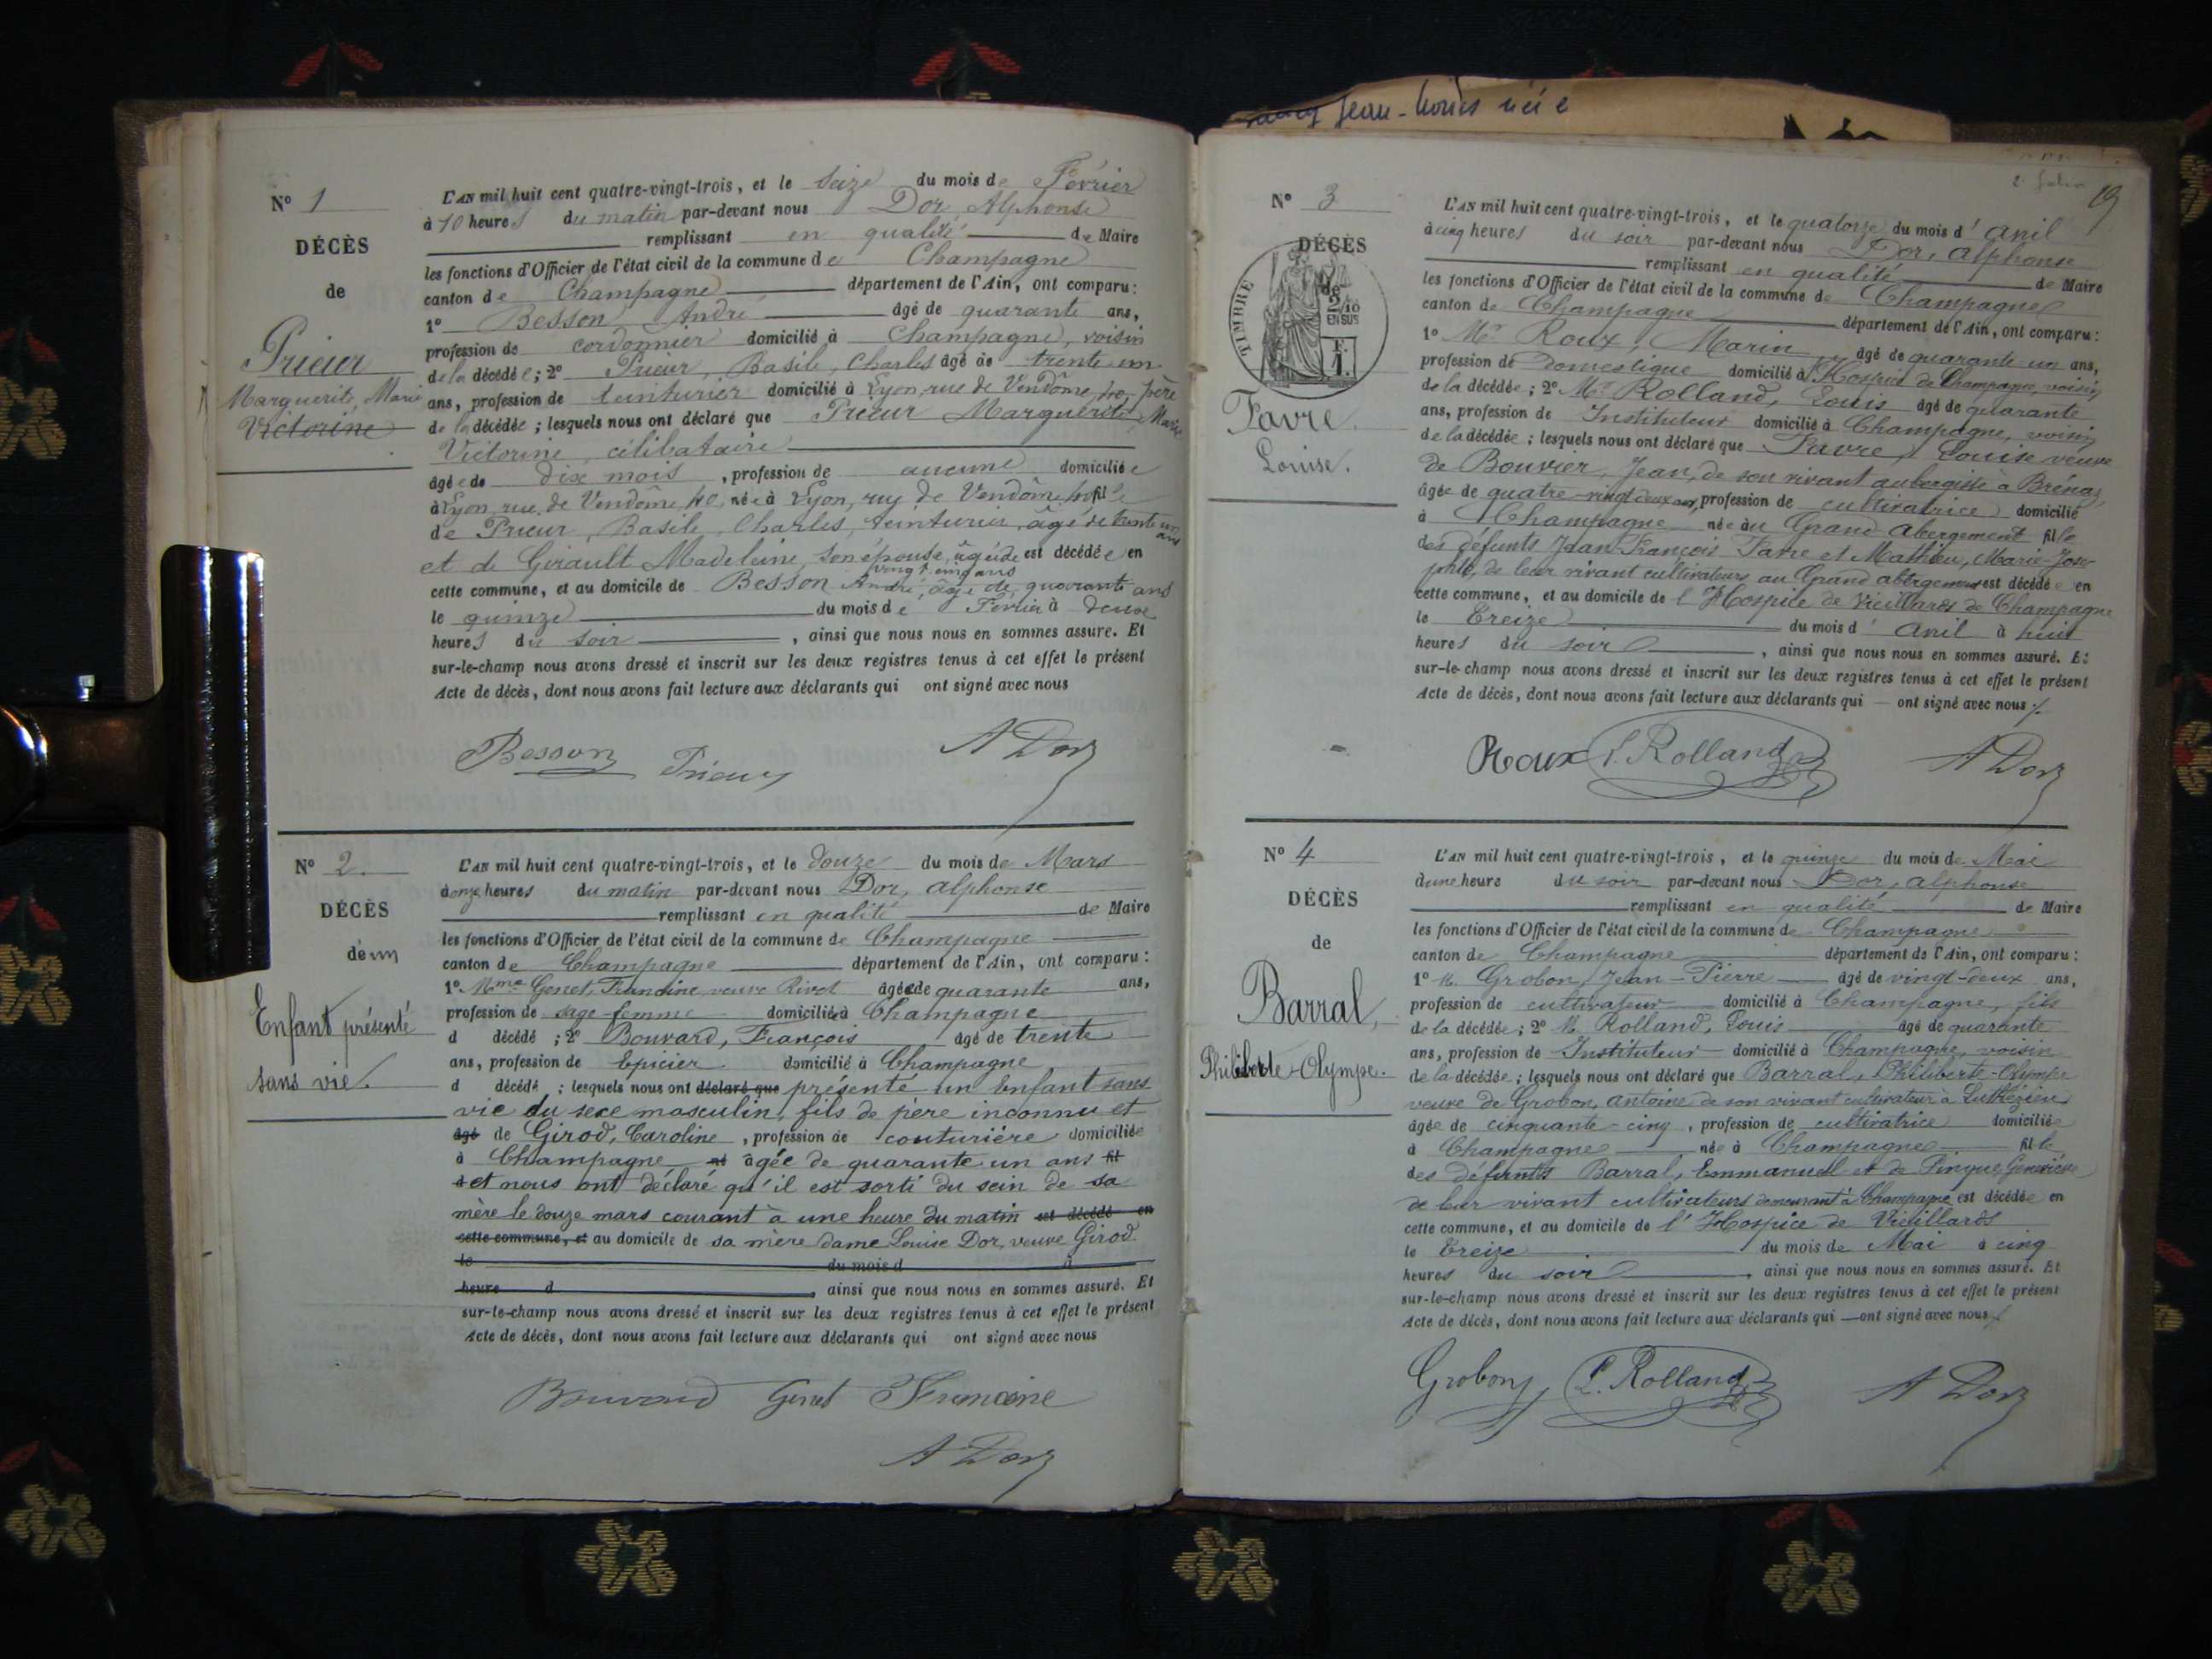 Jean-Louis née
Nº 1
DÉCÈS
de
Prieur
Marguerite, Marie
Victorine
L'AN mil huit cent quatre-vingt-trois, et le Seize du mois de Février
à 10 heures du matin par-devant nous Dor Alphonse
remplissant en qualité de Maire
les fonctions d'Officier de l'état civil de la commune de Champagne
canton de Champagne département de l'Ain, ont comparu:
1º Besson André âgé de quarante ans,
profession de cordonnier domicilié à Champagne, voisin
de la décédée; 2º Prieur, Basile, Charles âgé de trente un
ans, profession de teinturier domicilié à Lyon, rue de Vendôme, 40, père
de la décédée; lesquels nous ont déclaré que Prieur Marguerite, Marie
Victorine, célibataire
âgée de dix mois, profession de aucune domiciliée
à Lyon, rue de Vendôme, 40, née à Lyon, rue de Vendôme, 40 fille
de Prieur, Basile, Charles, teinturier, âgé de trente un ans
et de Girault Madeleine, son épouse, âgée de vingt cinq ans est décédée en
cette commune, et au domicile de Besson André, âgé de quarante ans
le quinze du mois de Février à deux
heures du soir, ainsi que nous nous en sommes assuré. Et
sur-le-champ nous avons dressé et inscrit sur les deux registres tenus à cet effet le présent
Acte de décès, dont nous avons fait lecture aux déclarants qui ont signé avec nous
Besson Prieur A Dor
Nº 2.
DÉCÈS
d'un
Enfant présenté
sans vie.
L'AN mil huit cent quatre-vingt-trois, et le douze du mois de Mars
à onze heures du matin par-devant nous Dor, alphonse
remplissant en qualité de Maire
les fonctions d'Officier de l'état civil de la commune de Champagne
canton de Champagne département de l'Ain, ont comparu:
1º Mme Genet, Francine veuve Rivet âgée de quarante ans,
profession de sage-femme domiciliée à Champagne
d décédé; 2º Bouvard, François âgé de trente
ans, profession de Epicier domicilié à Champagne
d décédé; lesquels nous ont déclaré que présenté un enfant sans
vie du sexe masculin, fils de père inconnu et
âgé de Girod, Caroline, profession de couturière domiciliée
à Champagne né âgée de quarante un ans fil
d et nous ont déclaré qu'il est sorti du sein de sa
mère le douze mars courant à une heure du matin est décédé en
cette commune, et au domicile de sa mère dame Louise Dor, veuve Girod.
le du mois d à
heure d ainsi que nous nous en sommes assuré. Et
sur-le-champ nous avons dressé et inscrit sur les deux registres tenus à cet effet le présent
Acte de décès, dont nous avons fait lecture aux déclarants qui ont signé avec nous
Bouvard Genet Francine
A Dor
19
Nº 3
DÉCÈS
de
TIMBRE
2/10
EN SUS
F.
1.
Favre.
Louise.
L'AN mil huit cent quatre-vingt-trois, et le quatorze du mois d'avril
à cinq heures du soir par-devant nous Dor, alphonse
remplissant en qualité de Maire
les fonctions d'Officier de l'état civil de la commune de Champagne
canton de Champagne département de l'Ain, ont comparu:
1º Mr Roux, Marin, âgé de quarante un ans,
profession de domestique domicilié à l'Hospice de Champagne, voisin
de la décédée; 2º Mr Rolland, Louis âgé de quarante
ans, profession de Instituteur domicilié à Champagne, voisin
de la décédée; lesquels nous ont déclaré que Favre, Louise veuve
de Bouvier, Jean, de son vivant aubergiste à Brénaz
âgée de quatre-vingt deux ans, profession de cultivatrice domicilié
à Champagne née au Grand abergement fille
des défunts Jean François Favre et Mathieu, Marie-Jose
phte, de leur vivant cultivateurs au Grand abergement est décédée en
cette commune, et au domicile de l'Hospice de Vieillards de Champagne
le treize du mois d'avril à huit
heures du soir, ainsi que nous nous en sommes assuré. Et
sur-le-champ nous avons dressé et inscrit sur les deux registres tenus à cet effet le présent
Acte de décès, dont nous avons fait lecture aux déclarants qui — ont signé avec nous
Roux L. Rolland A Dor
Nº 4
DÉCÈS
de
Barral,
Philiberte-Olympe.
L'AN mil huit cent quatre-vingt-trois, et le quinze du mois de Mai
à une heure du soir par-devant nous Dor, alphonse
remplissant en qualité de Maire
les fonctions d'Officier de l'état civil de la commune de Champagne
canton de Champagne département de l'Ain, ont comparu:
1º M. Grobon, Jean-Pierre âgé de vingt-deux ans,
profession de cultivateur domicilié à Champagne, fils
de la décédée; 2º M. Rolland, Louis âgé de quarante
ans, profession de Instituteur domicilié à Champagne, voisin
de la décédée; lesquels nous ont déclaré que Barral, Philiberte-Olympe
veuve de Grobon, antoine de son vivant cultivateur à Luthézieu
âgée de cinquante-cinq, profession de cultivatrice domiciliée
à Champagne née à Champagne fille
des défunts Barral, Emmanuel et de Pingue Geneviève
de leur vivant cultivateurs demeurant à Champagne est décédée en
cette commune, et au domicile de l'Hospice de Vieillards
le treize du mois de Mai à cinq
heures du soir, ainsi que nous nous en sommes assuré. Et
sur-le-champ nous avons dressé et inscrit sur les deux registres tenus à cet effet le présent
Acte de décès, dont nous avons fait lecture aux déclarants qui — ont signé avec nous
Grobon L. Rolland A Dor